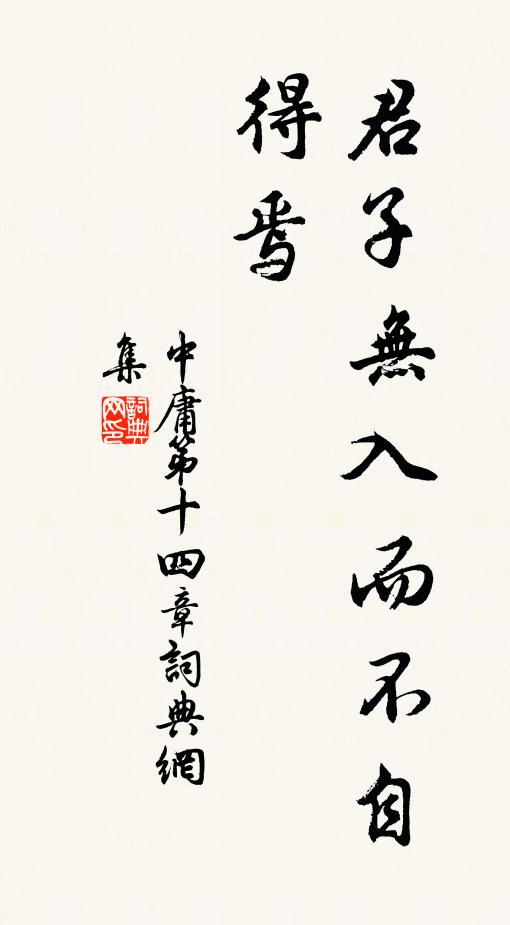 君子無入而不自
得焉
中庸第十四章詞典網
集
詞典
网印